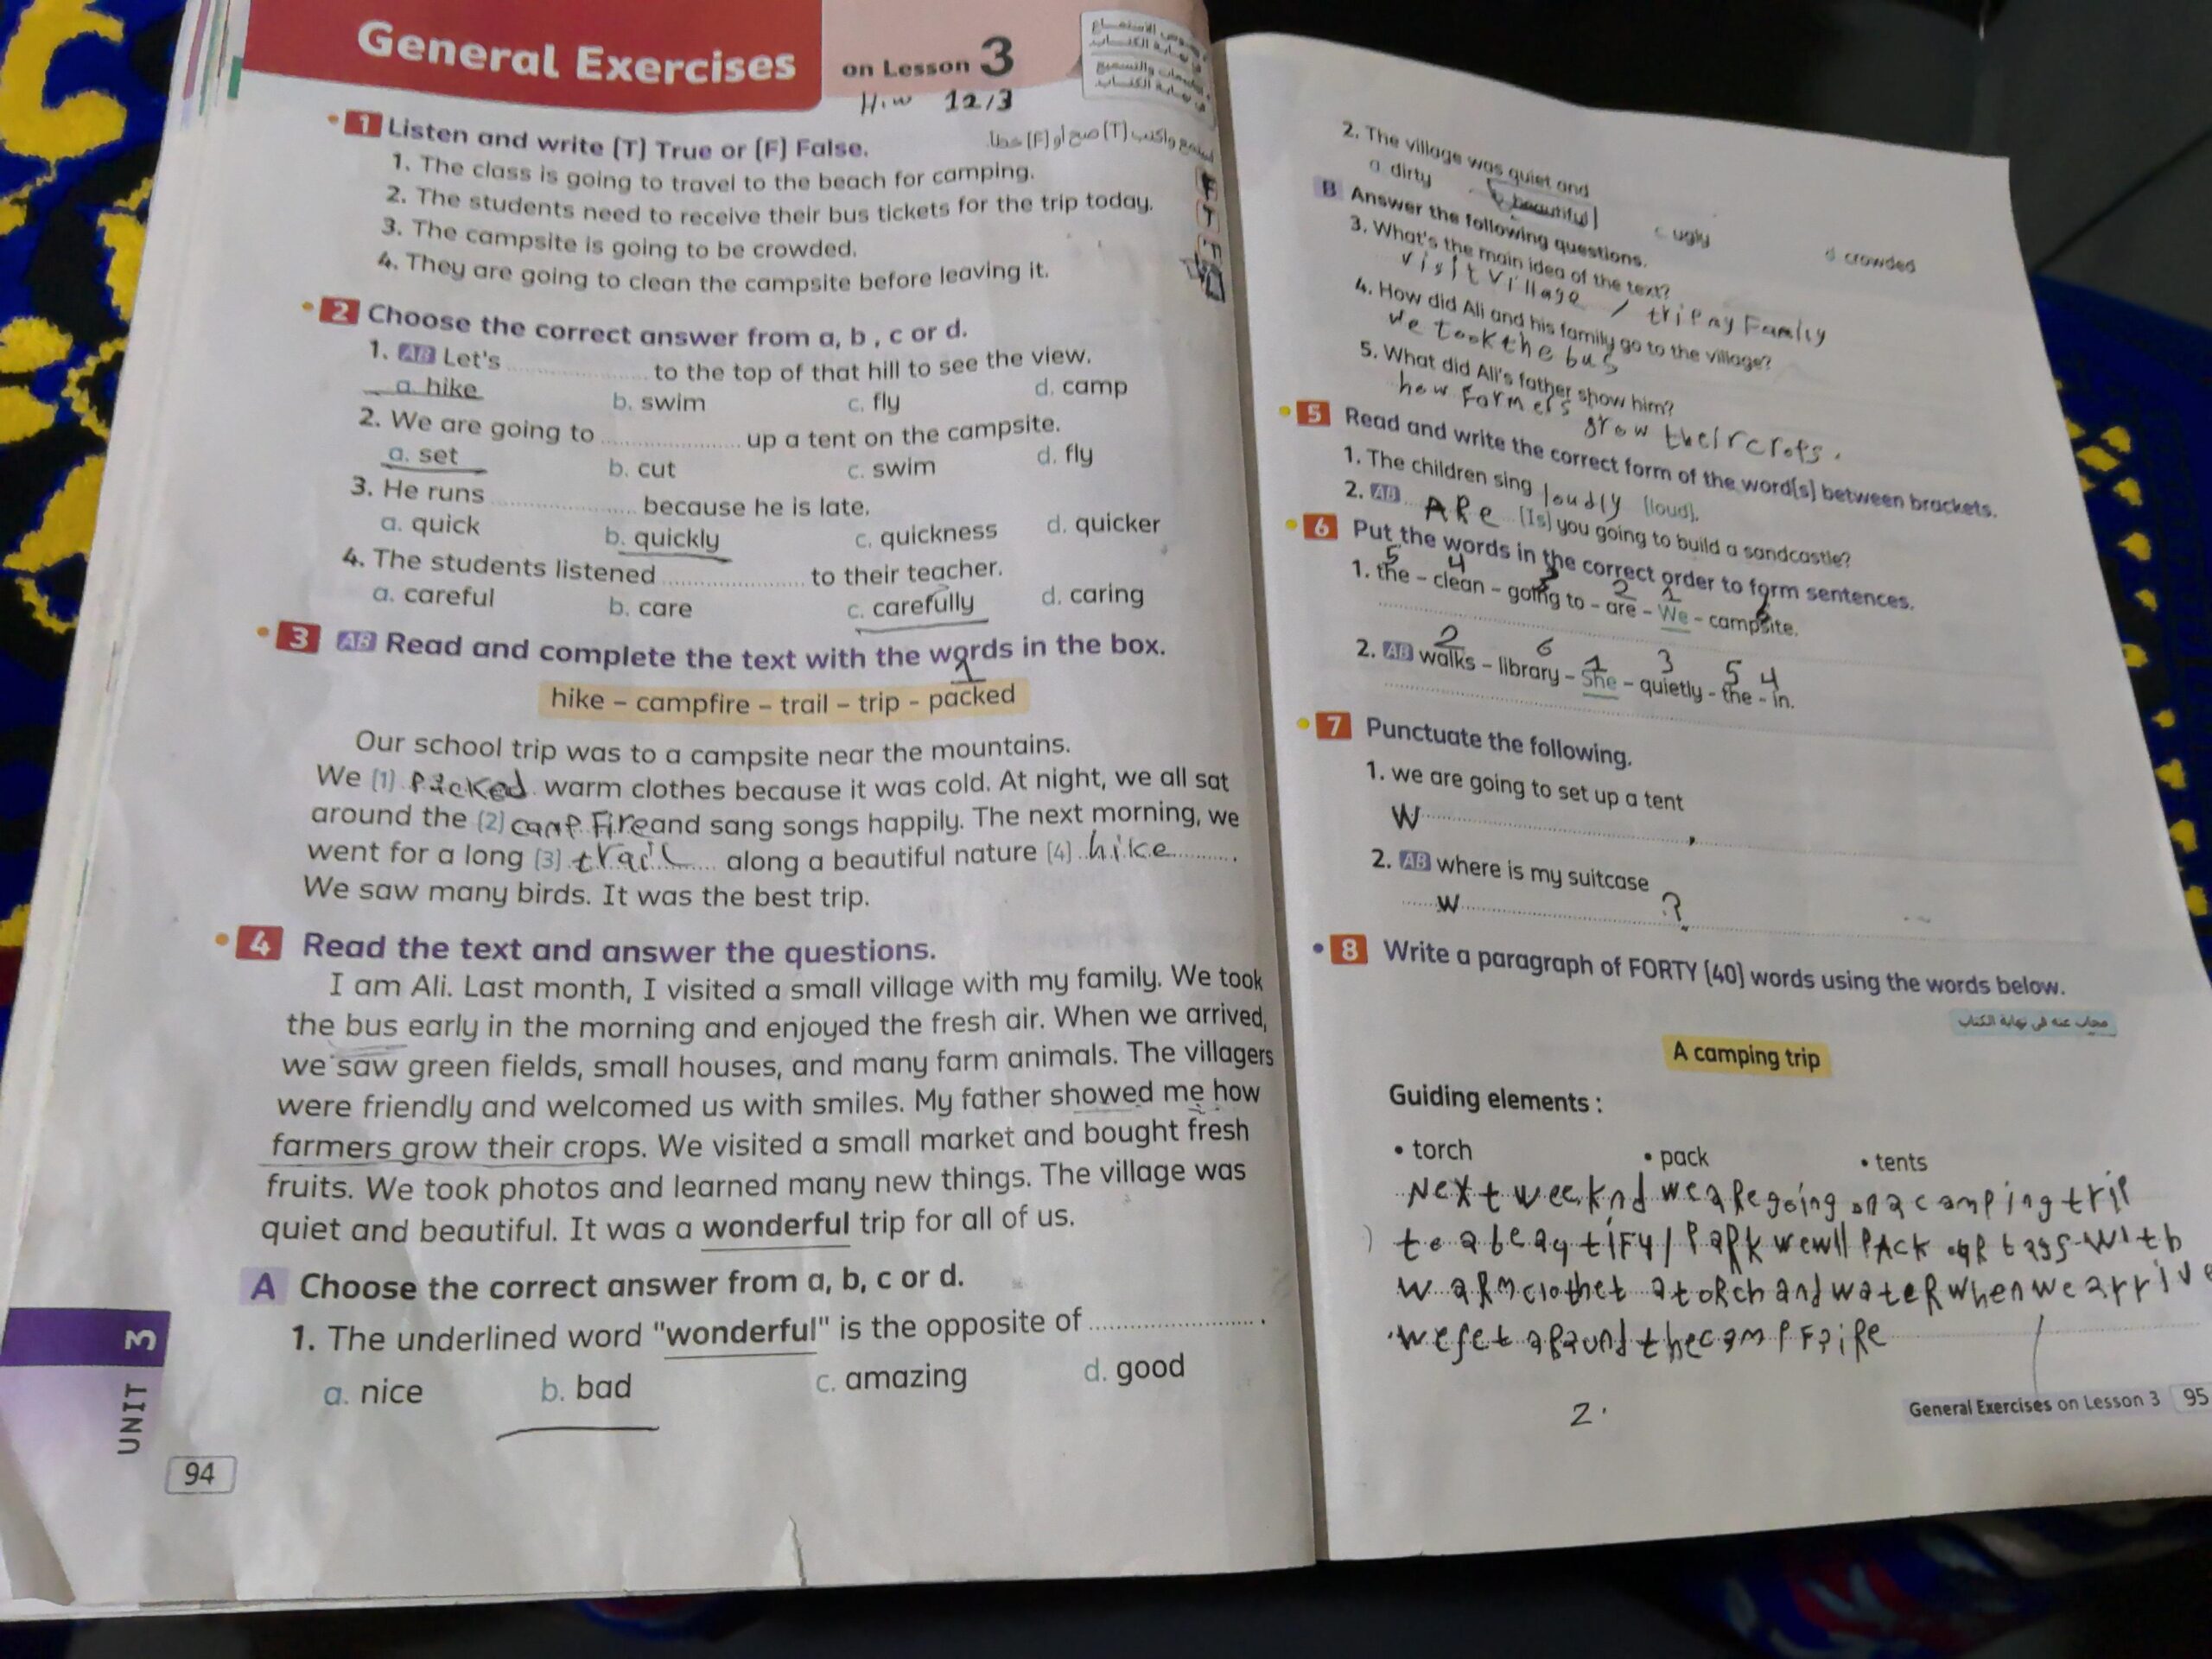 General Exercises on Lesson 3
H.w 12/3
نصوص الاستماع
فى نهاية الكتاب
1 Listen and write [T] True or [F] False.
استمع واكتب [T] صح أو [F] خطأ.
1. The class is going to travel to the beach for camping.
2. The students need to receive their bus tickets for the trip today.
3. The campsite is going to be crowded.
4. They are going to clean the campsite before leaving it.
2 Choose the correct answer from a, b , c or d.
1. AB Let's ........ to the top of that hill to see the view.
a. hike b. swim c. fly d. camp
2. We are going to ........ up a tent on the campsite.
a. set b. cut c. swim d. fly
3. He runs ........ because he is late.
a. quick b. quickly c. quickness d. quicker
4. The students listened ........ to their teacher.
a. careful b. care c. carefully d. caring
3 AB Read and complete the text with the words in the box.
1
hike – campfire – trail – trip – packed
Our school trip was to a campsite near the mountains.
We [1] packed warm clothes because it was cold. At night, we all sat
around the [2] camp Fire and sang songs happily. The next morning, we
went for a long [3] trail along a beautiful nature [4] hike .
We saw many birds. It was the best trip.
4 Read the text and answer the questions.
I am Ali. Last month, I visited a small village with my family. We took
the bus early in the morning and enjoyed the fresh air. When we arrived,
we saw green fields, small houses, and many farm animals. The villagers
were friendly and welcomed us with smiles. My father showed me how
farmers grow their crops. We visited a small market and bought fresh
fruits. We took photos and learned many new things. The village was
quiet and beautiful. It was a wonderful trip for all of us.
A Choose the correct answer from a, b, c or d.
1. The underlined word "wonderful" is the opposite of ........ .
a. nice b. bad c. amazing d. good
UNIT 3
94
2. The village was quiet and
a dirty b beautiful c ugly d crowded
B Answer the following questions.
3. What's the main idea of the text?
visit village / trip my Family
4. How did Ali and his family go to the village?
We took the bus
5. What did Ali's father show him?
how Formers grow their crops.
5 Read and write the correct form of the word(s) between brackets.
1. The children sing loudly [loud].
2. AB ARe [Is] you going to build a sandcastle?
6 Put the words in the correct order to form sentences.
5 4 3 2 1 6
1. the – clean – going to – are – We – campsite.
2 6 1 3 5 4
2. AB walks – library – She – quietly – the – in.
7 Punctuate the following.
1. we are going to set up a tent
W ........ .
2. AB where is my suitcase
W ........ ?
8 Write a paragraph of FORTY [40] words using the words below.
مجاب عنه فى نهاية الكتاب
A camping trip
Guiding elements :
• torch • pack • tents
Next weeknd we aRe going on a camping trip
to a beautiFul PaRk we will PAck ouR bags with
waRm clothet a toRch and wateR when we arrive
we set aRound the camp FaiRe
2.
General Exercises on Lesson 3 95